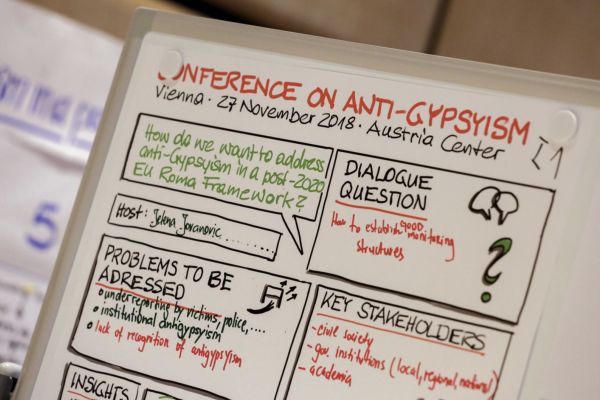 CONFERENCE ON ANTI-GYPSYISM
Vienna · 27 November 2018 · Austria Center
How do we want to address
anti-Gypsyism in a post-2020
EU Roma Framework?
Host: Jelena Jovanovic ........
DIALOGUE
QUESTION
How to establish GOOD monitoring
structures
?
PROBLEMS TO BE
ADRESSED
• underreporting by victims, police, ....
• institutional antigypsyism
• lack of recognition of antigypsyism
KEY STAKEHOLDERS
- civil society
- gov. institutions (local, regional, national)
- academia
INSIGHTS
5